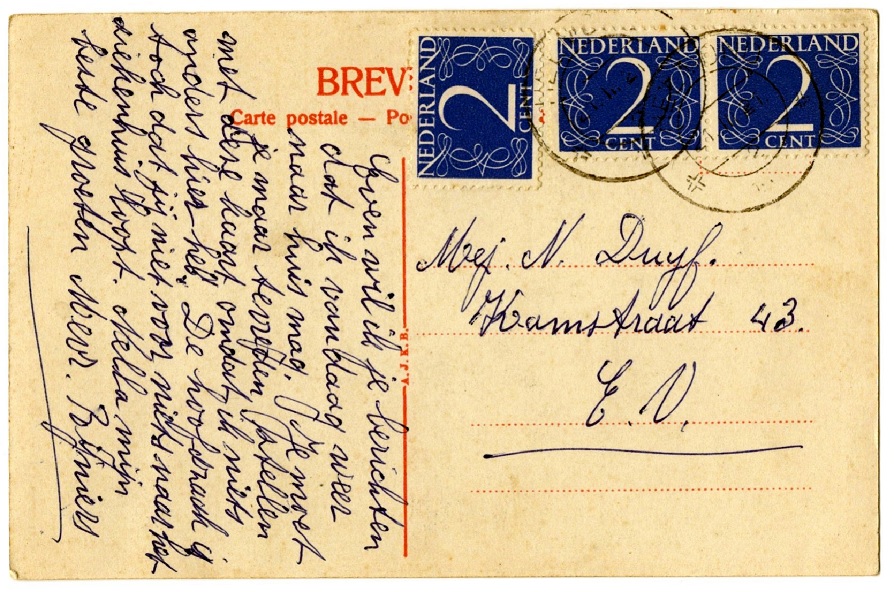 BREV
Carte postale — Po
NEDERLAND
2
CENT
NEDERLAND
2
CENT
NEDERLAND
2
CENT
Even wil ik je berichten
dat ik vandaag weer
naar huis mag. Je moet
je maar tevreden stellen
met deze kaart omdat ik niets
anders hier heb. De hoofdzaak is
toch dat jij niet voor niets naar het
ziekenhuis loopt. Nelda mijn
beste groeten Mevr.
A.J.K.B.
Mej. N. Duyf.
Kamstraat 43.
E. V.